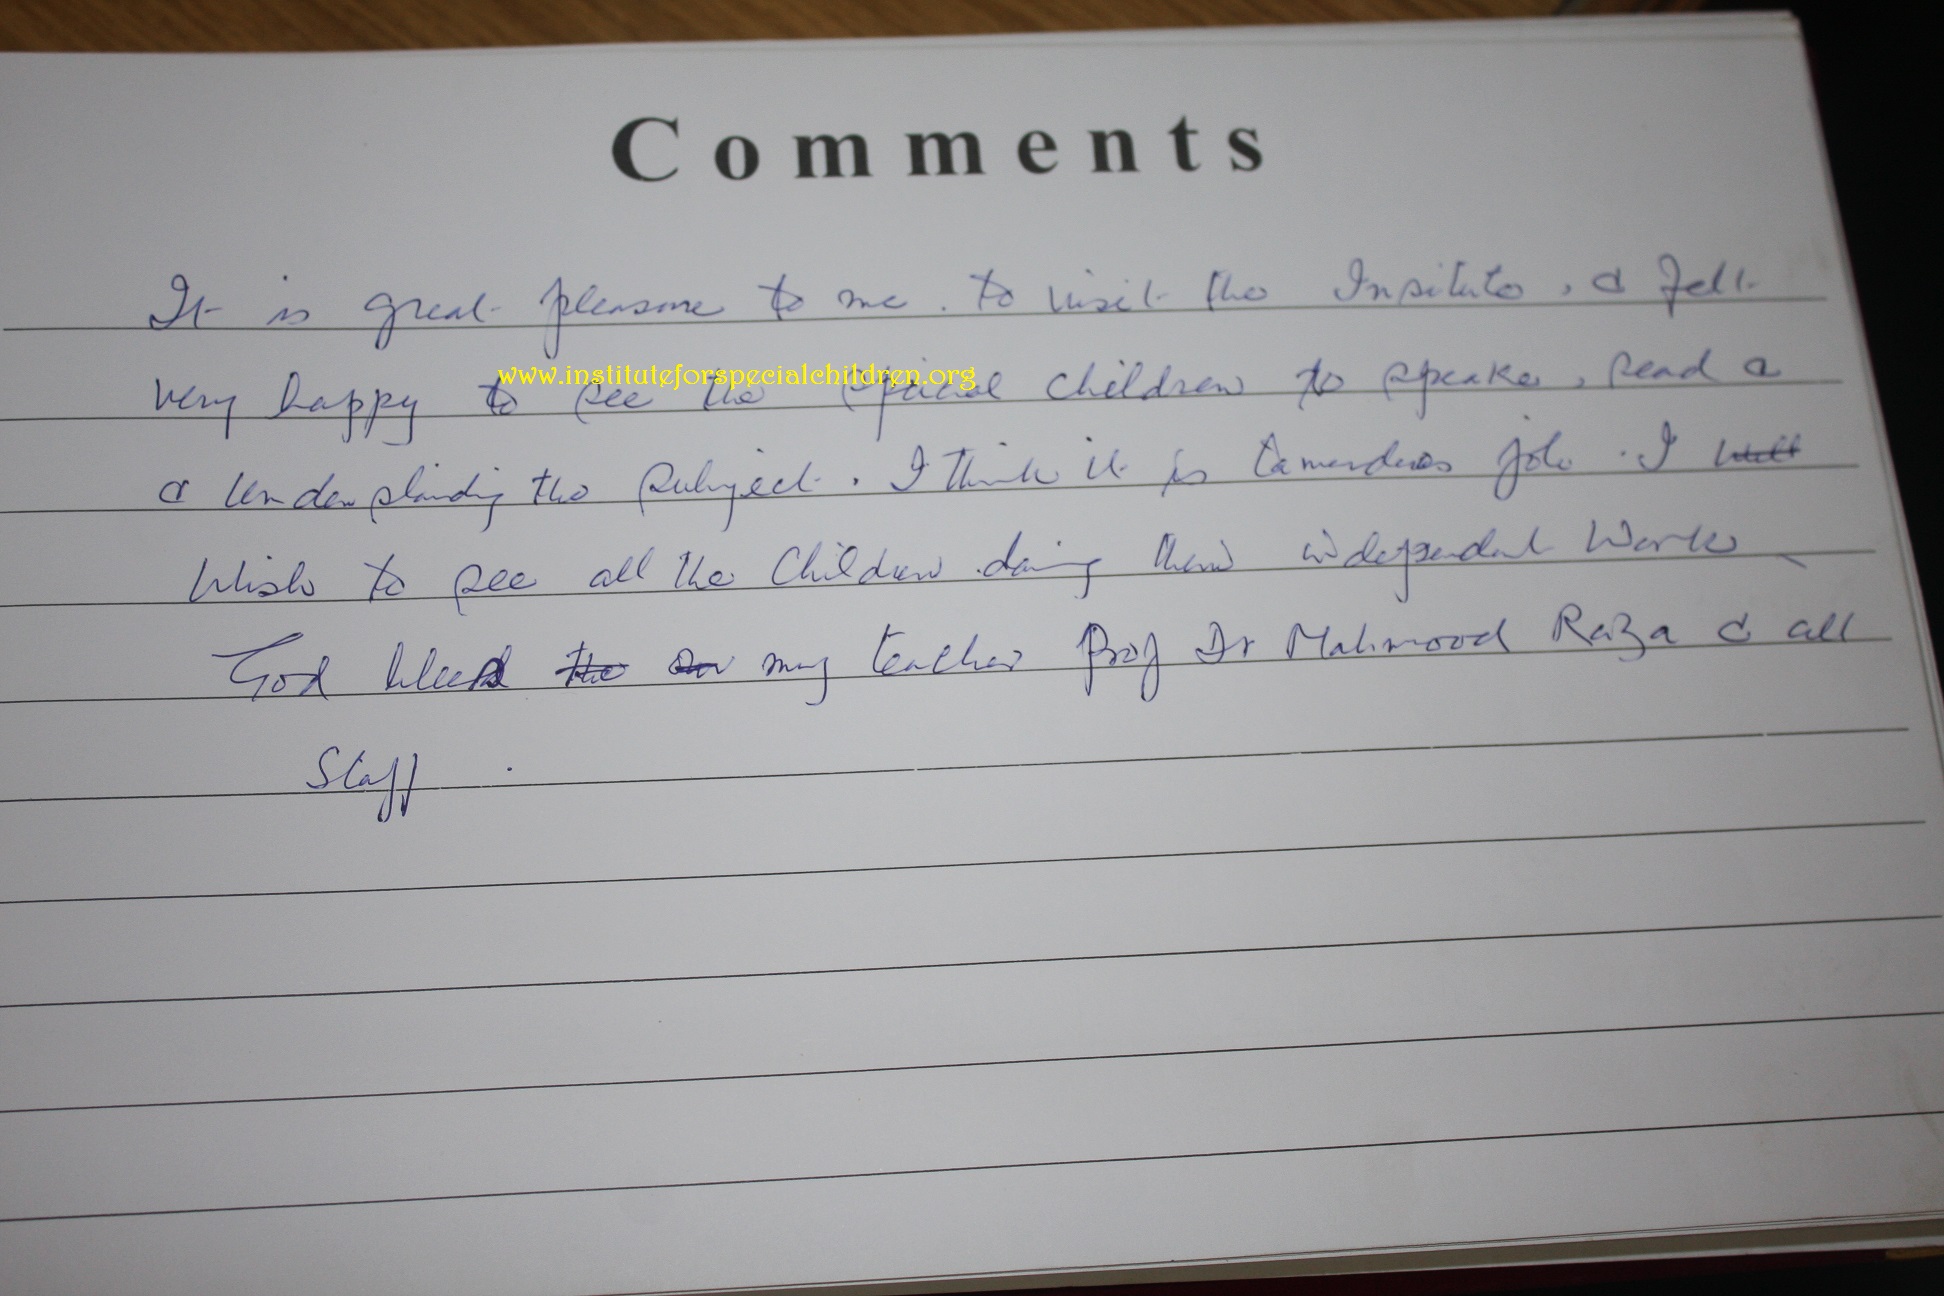 Comments
It is great pleasure to me. to visit the Insitute, & felt
very happy to see the special children to speake, read &
www.instituteforspecialchildren.org
& understanding the subject. I think it is job. I
wish to see all the children doing their independent work
God bless my teacher Prof Dr Mahmood Raza & all
Staff.